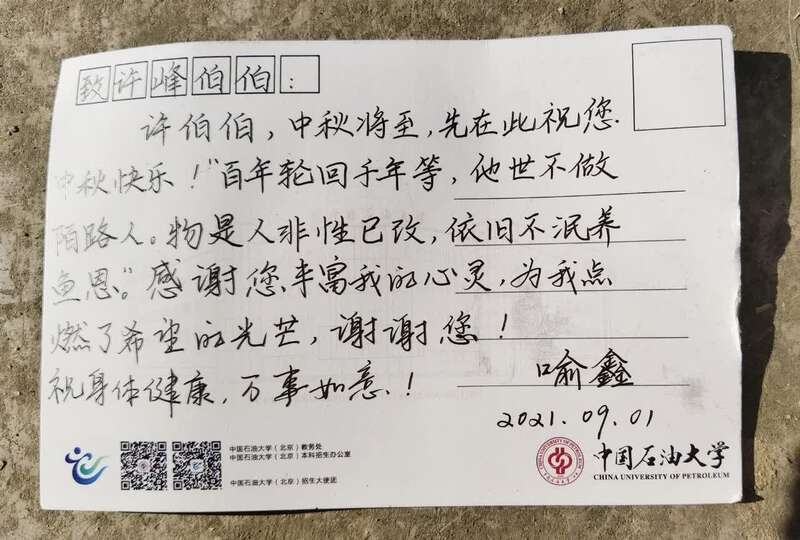 致许峰伯伯：
许伯伯，中秋将至，先在此祝您
中秋快乐！“百年轮回千年等，他世不做
陌路人。物是人非性已改，依旧不泯养
鱼恩。”感谢您丰富我的心灵，为我点
燃了希望的光芒，谢谢您！
祝身体健康，万事如意！
喻鑫
2021.09.01
中国石油大学（北京）教务处
中国石油大学（北京）本科招生办公室
中国石油大学（北京）招生大使团
中国石油大学
CHINA UNIVERSITY OF PETROLEUM